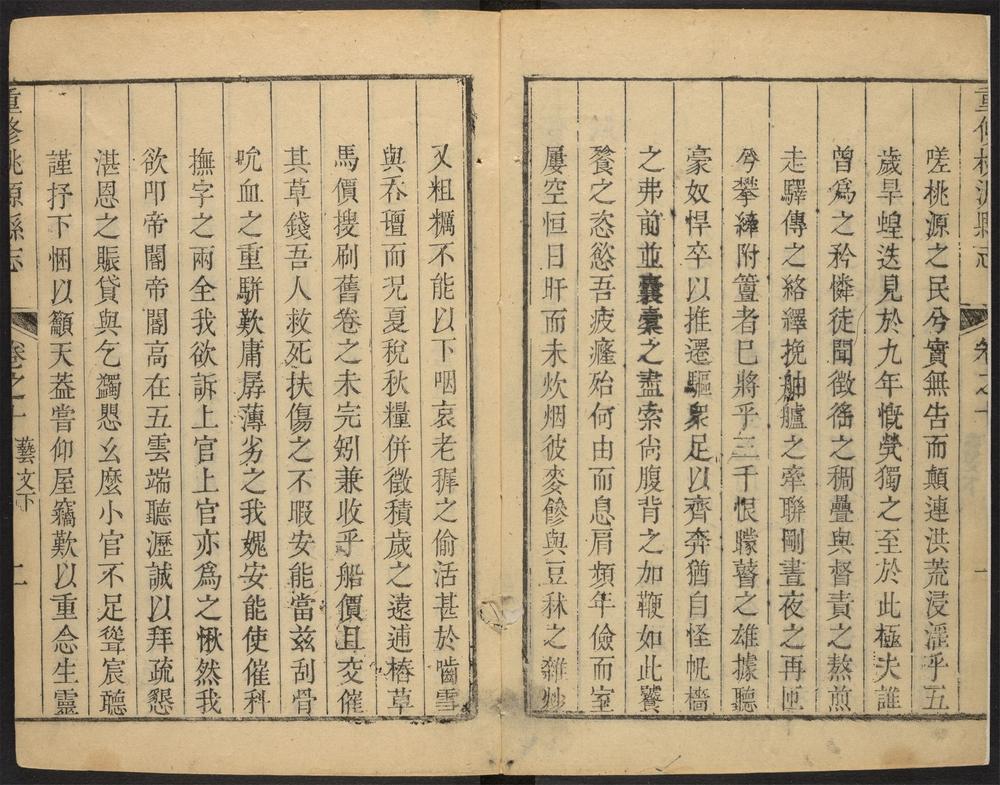 重修桃源縣志 卷之十 一
嗟桃源之民兮實無告而顛連洪荒浸淫乎五
歲旱蝗迭見於九年慨煢獨之至於此極夫誰
曾為之矜憐徒聞徵徭之稠疊與督責之熬煎
走驛傳之絡繹挽舳艫之牽聯剛晝夜之再匝
兮攀縴附簹者已將乎三千恨矇瞽之雄據聽
豪奴悍卒以推遷驅衆足以齊奔猶自怪帆檣
之弗前並囊橐之盡索尚腹背之加鞭如此饕
餮之恣慾吾疲癃殆何由而息肩頻年儉而室
屢空恒日旰而未炊烟彼麥䭃與豆秣之雜炒
又粗糲不能以下咽哀老穉之偷活甚於嚙雪
與吞氊而況夏稅秋糧併徵積歲之遠逋樁草
馬價搜刷舊卷之未完矧兼收乎船價且交催
其草錢吾人救死扶傷之不暇安能當兹刮骨
吮血之重駢歎庸孱薄劣之我媿安能使催科
撫字之兩全我欲訴上官上官亦為之愀然我
欲叩帝閽帝閽高在五雲端聽瀝誠以拜疏懇
湛恩之賑貸與乞蠲愳幺麽小官不足聳宸聽
謹抒下悃以籲天葢嘗仰屋竊歎以重念生靈
重修桃源縣志 卷之十 藝文下 二